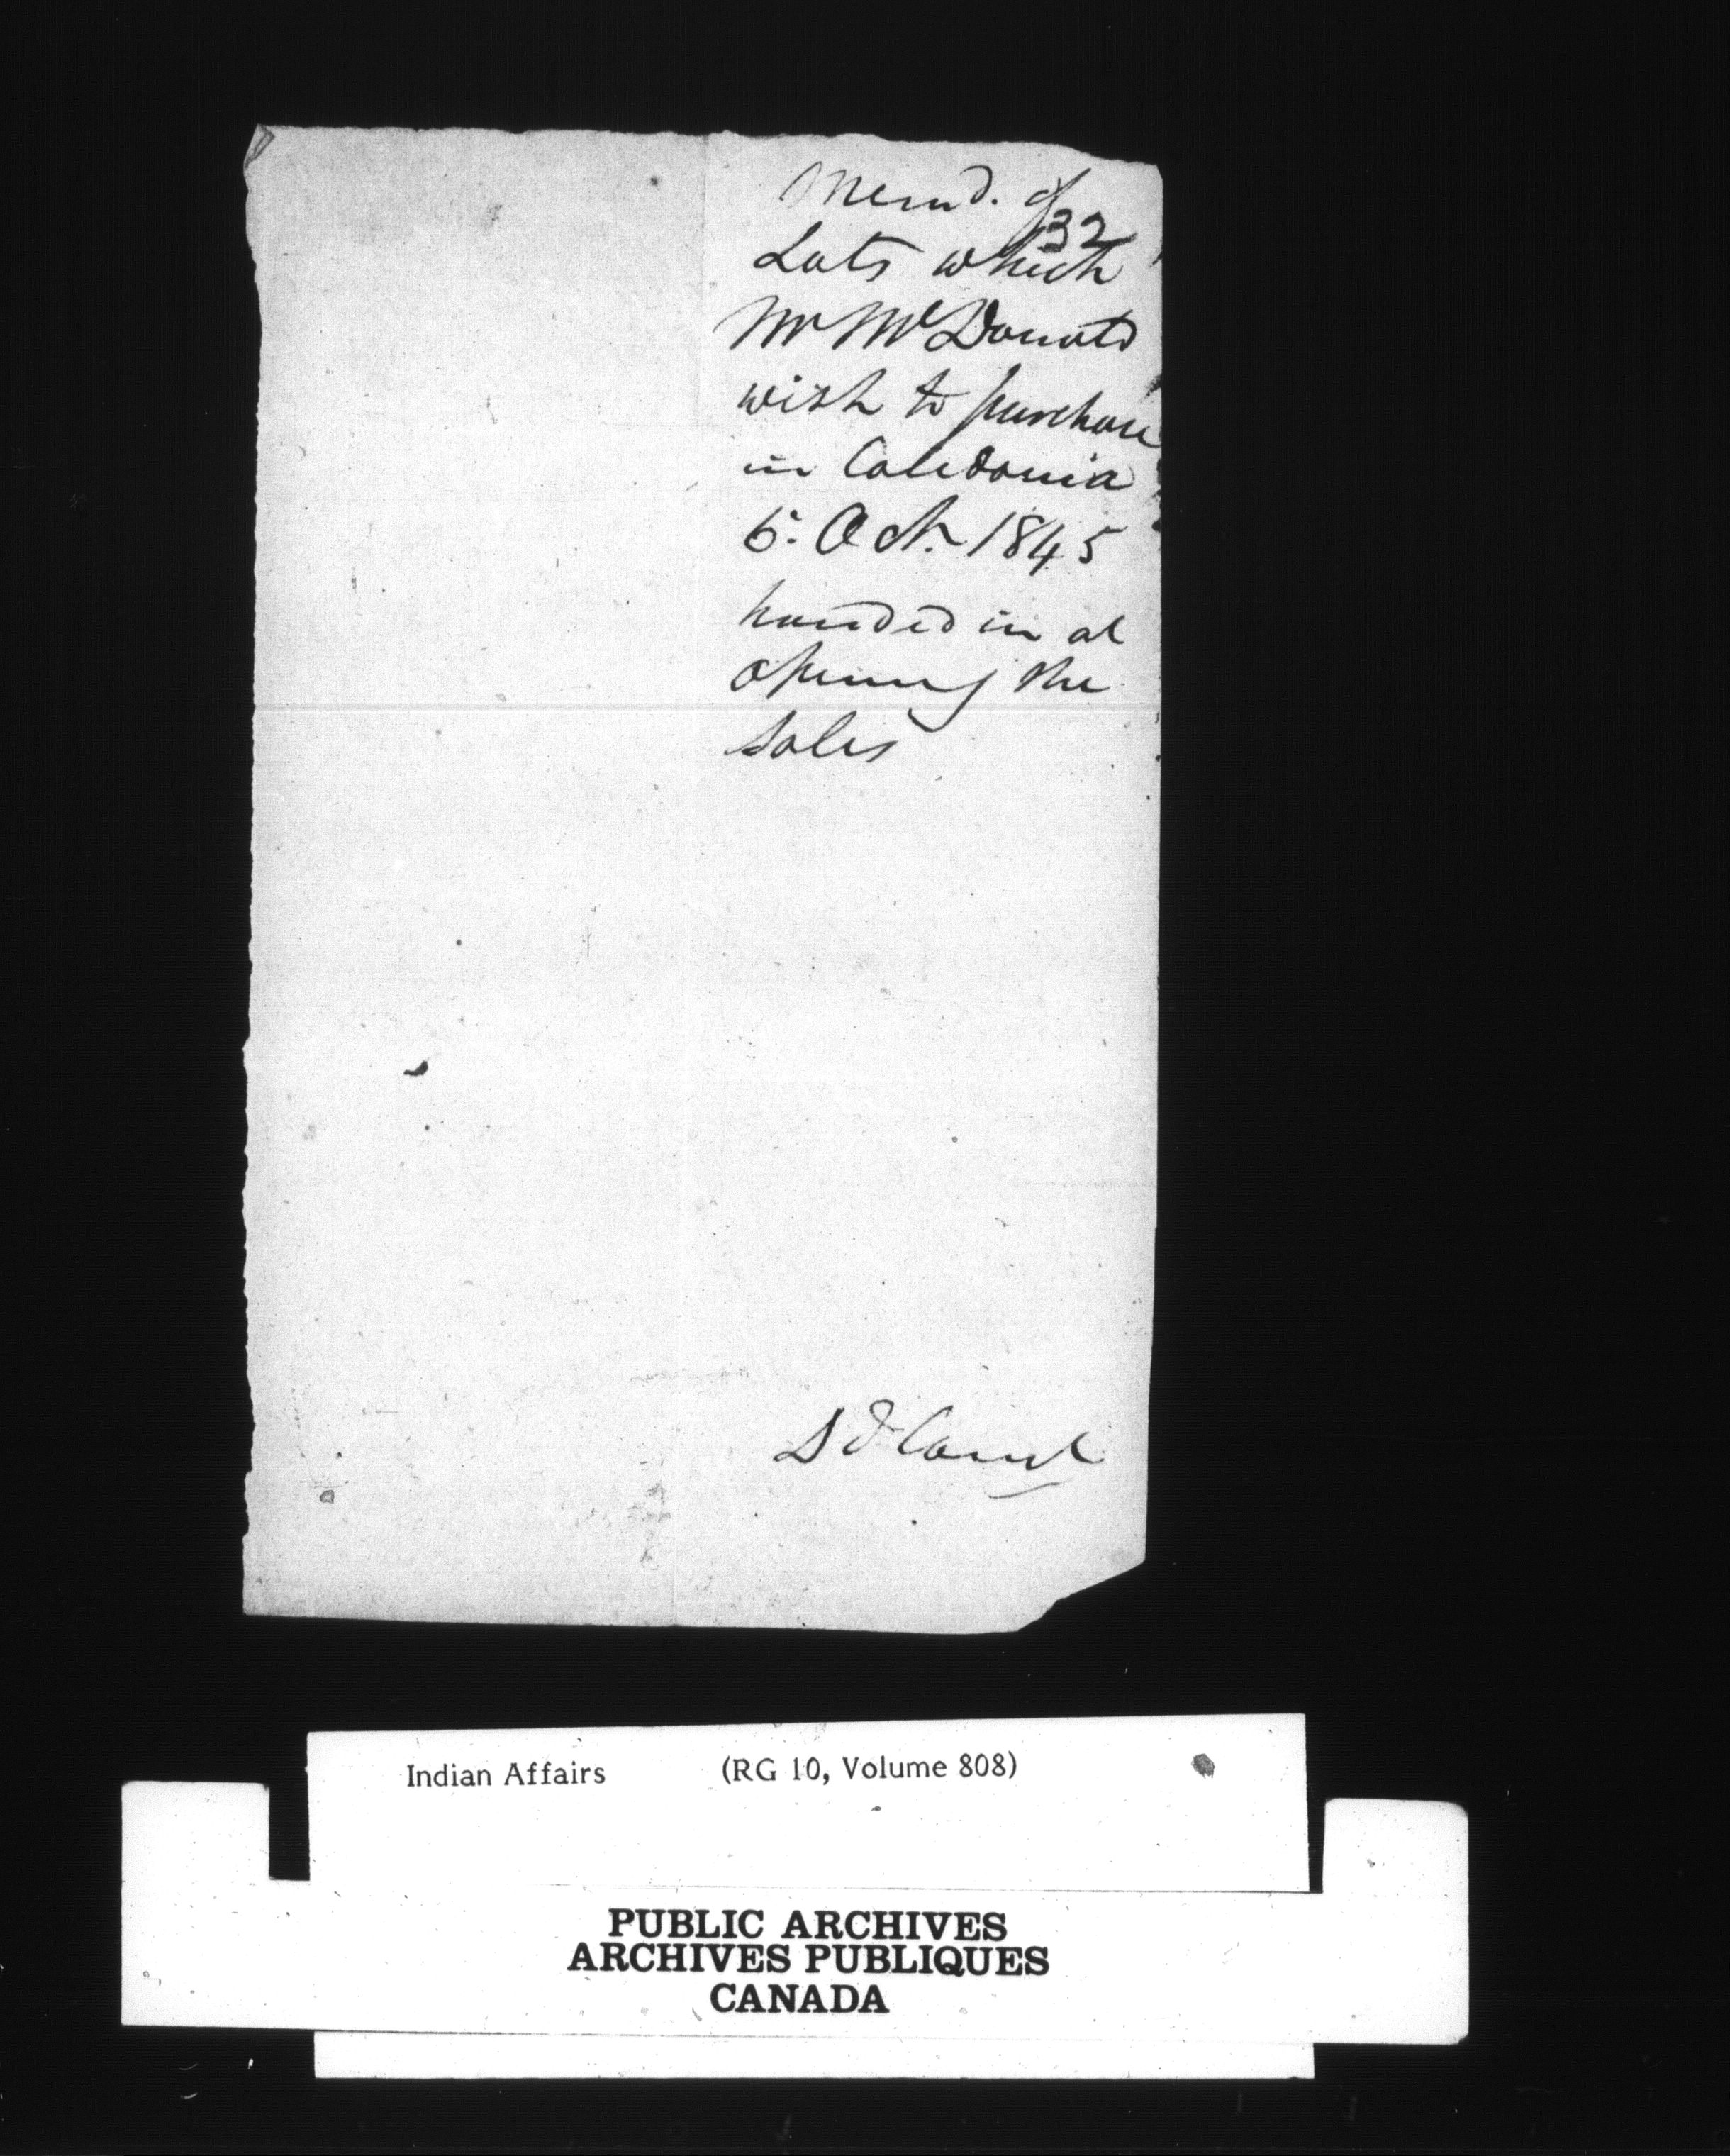 Memd. of
32
Lots which
Mr McDonald
wish to purchase
in Caledonia
6: Oct. 1845
handed in at
opening the
sales
Indian Affairs (RG 10, Volume 808)
PUBLIC ARCHIVES
ARCHIVES PUBLIQUES
CANADA